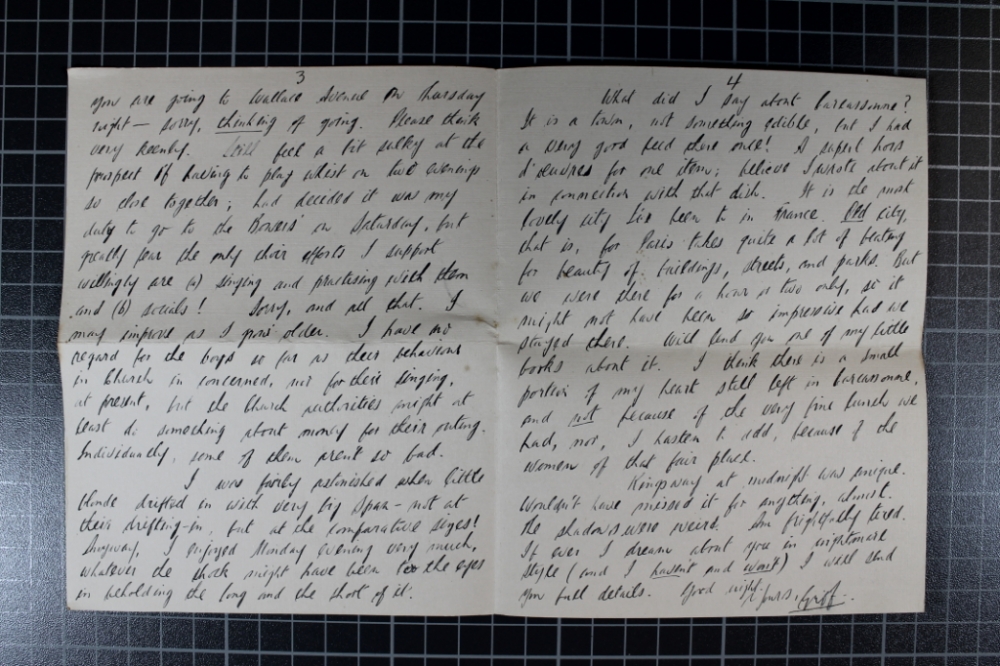 3
you are going to Wallace Avenue on Thursday
night — sorry, thinking of going. Please think
very keenly. Still feel a bit sulky at the
prospect of having to play whist on two evenings
so close together; had decided it was my
duty to go to the Bowers' on Saturday, but
greatly fear the only choir efforts I support
willingly are (a) singing and practising with them
and (b) socials! Sorry, and all that. I
may improve as I grow older. I have no
regard for the boys so far as their behaviour
in Church is concerned, nor for their singing,
at present, but the Church authorities might at
least do something about money for their outing.
Individually, some of them aren't so bad.
I was fairly astonished when little
blonde drifted in with very big Span – not at
their drifting-in, but at the comparative sizes!
Anyway, I enjoyed Monday evening very much,
whatever the shock might have been to the eyes
in beholding the long and the short of it.
4
What did I say about Carcassonne?
It is a town, not something edible, but I had
a very good feed there once! A superb hors
d'oeuvres for one item; believe I wrote about it
in connection with that dish. It is the most
lovely city I've been to in France. Old city,
that is, for Paris takes quite a lot of beating
for beauty of buildings, streets, and parks. But
we were there for a hour or two only, so it
might not have been so impressive had we
stayed there. Will lend you one of my little
books about it. I think there is a small
portion of my heart still left in Carcassonne,
and not because of the very fine lunch we
had, nor, I hasten to add, because of the
women of that fair place.
Kingsway at midnight was unique.
Wouldn't have missed it for anything, almost.
The shadows were weird. Am frightfully tired.
If ever I dream about you in nightmare
style (and I haven't and won't) I will send
you full details. Good night. Yours, Griff.